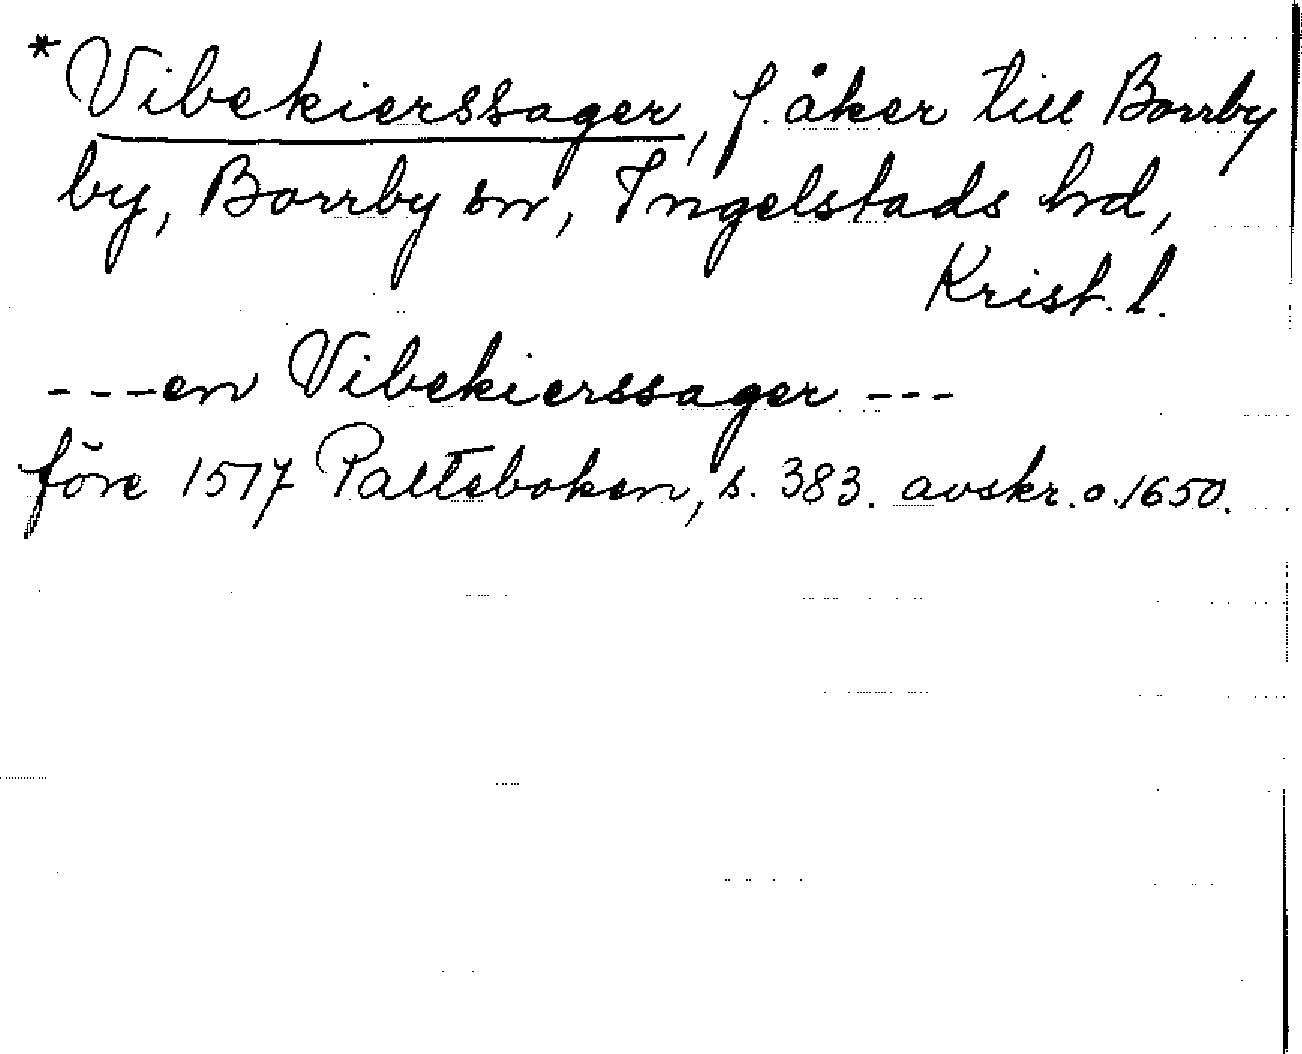 *Vibekierssager, f. åker till Borrby
by, Borrby sn, Ingelstads hd,
Krist. l.
---en Vibekierssager ---
före 1517 Palteboken, s. 383. avskr. o. 1650.